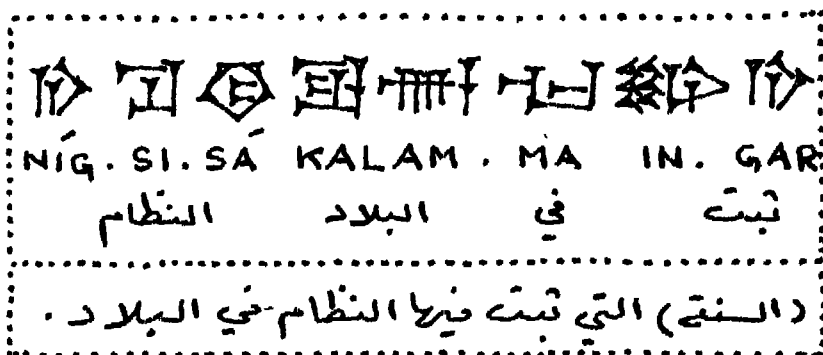 NÍG. SI. SÁ KALAM . MA IN. GAR
ثبت في البلاد النظام
(السنة) التي ثبت فيها النظام في البلاد .